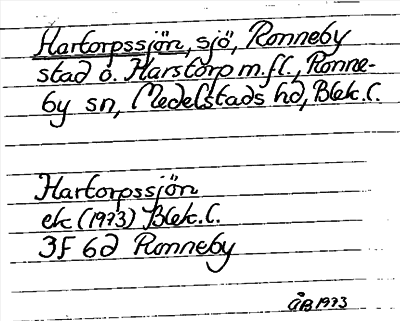 Hartorpssjön, sjö, Ronneby
stad o. Harstorp m.fl., Ronne-
by sn, Medelstads hd, Blek. l.
Hartorpssjön
ek (1973) Blek. l.
3F 6d Ronneby
ÅB 1973